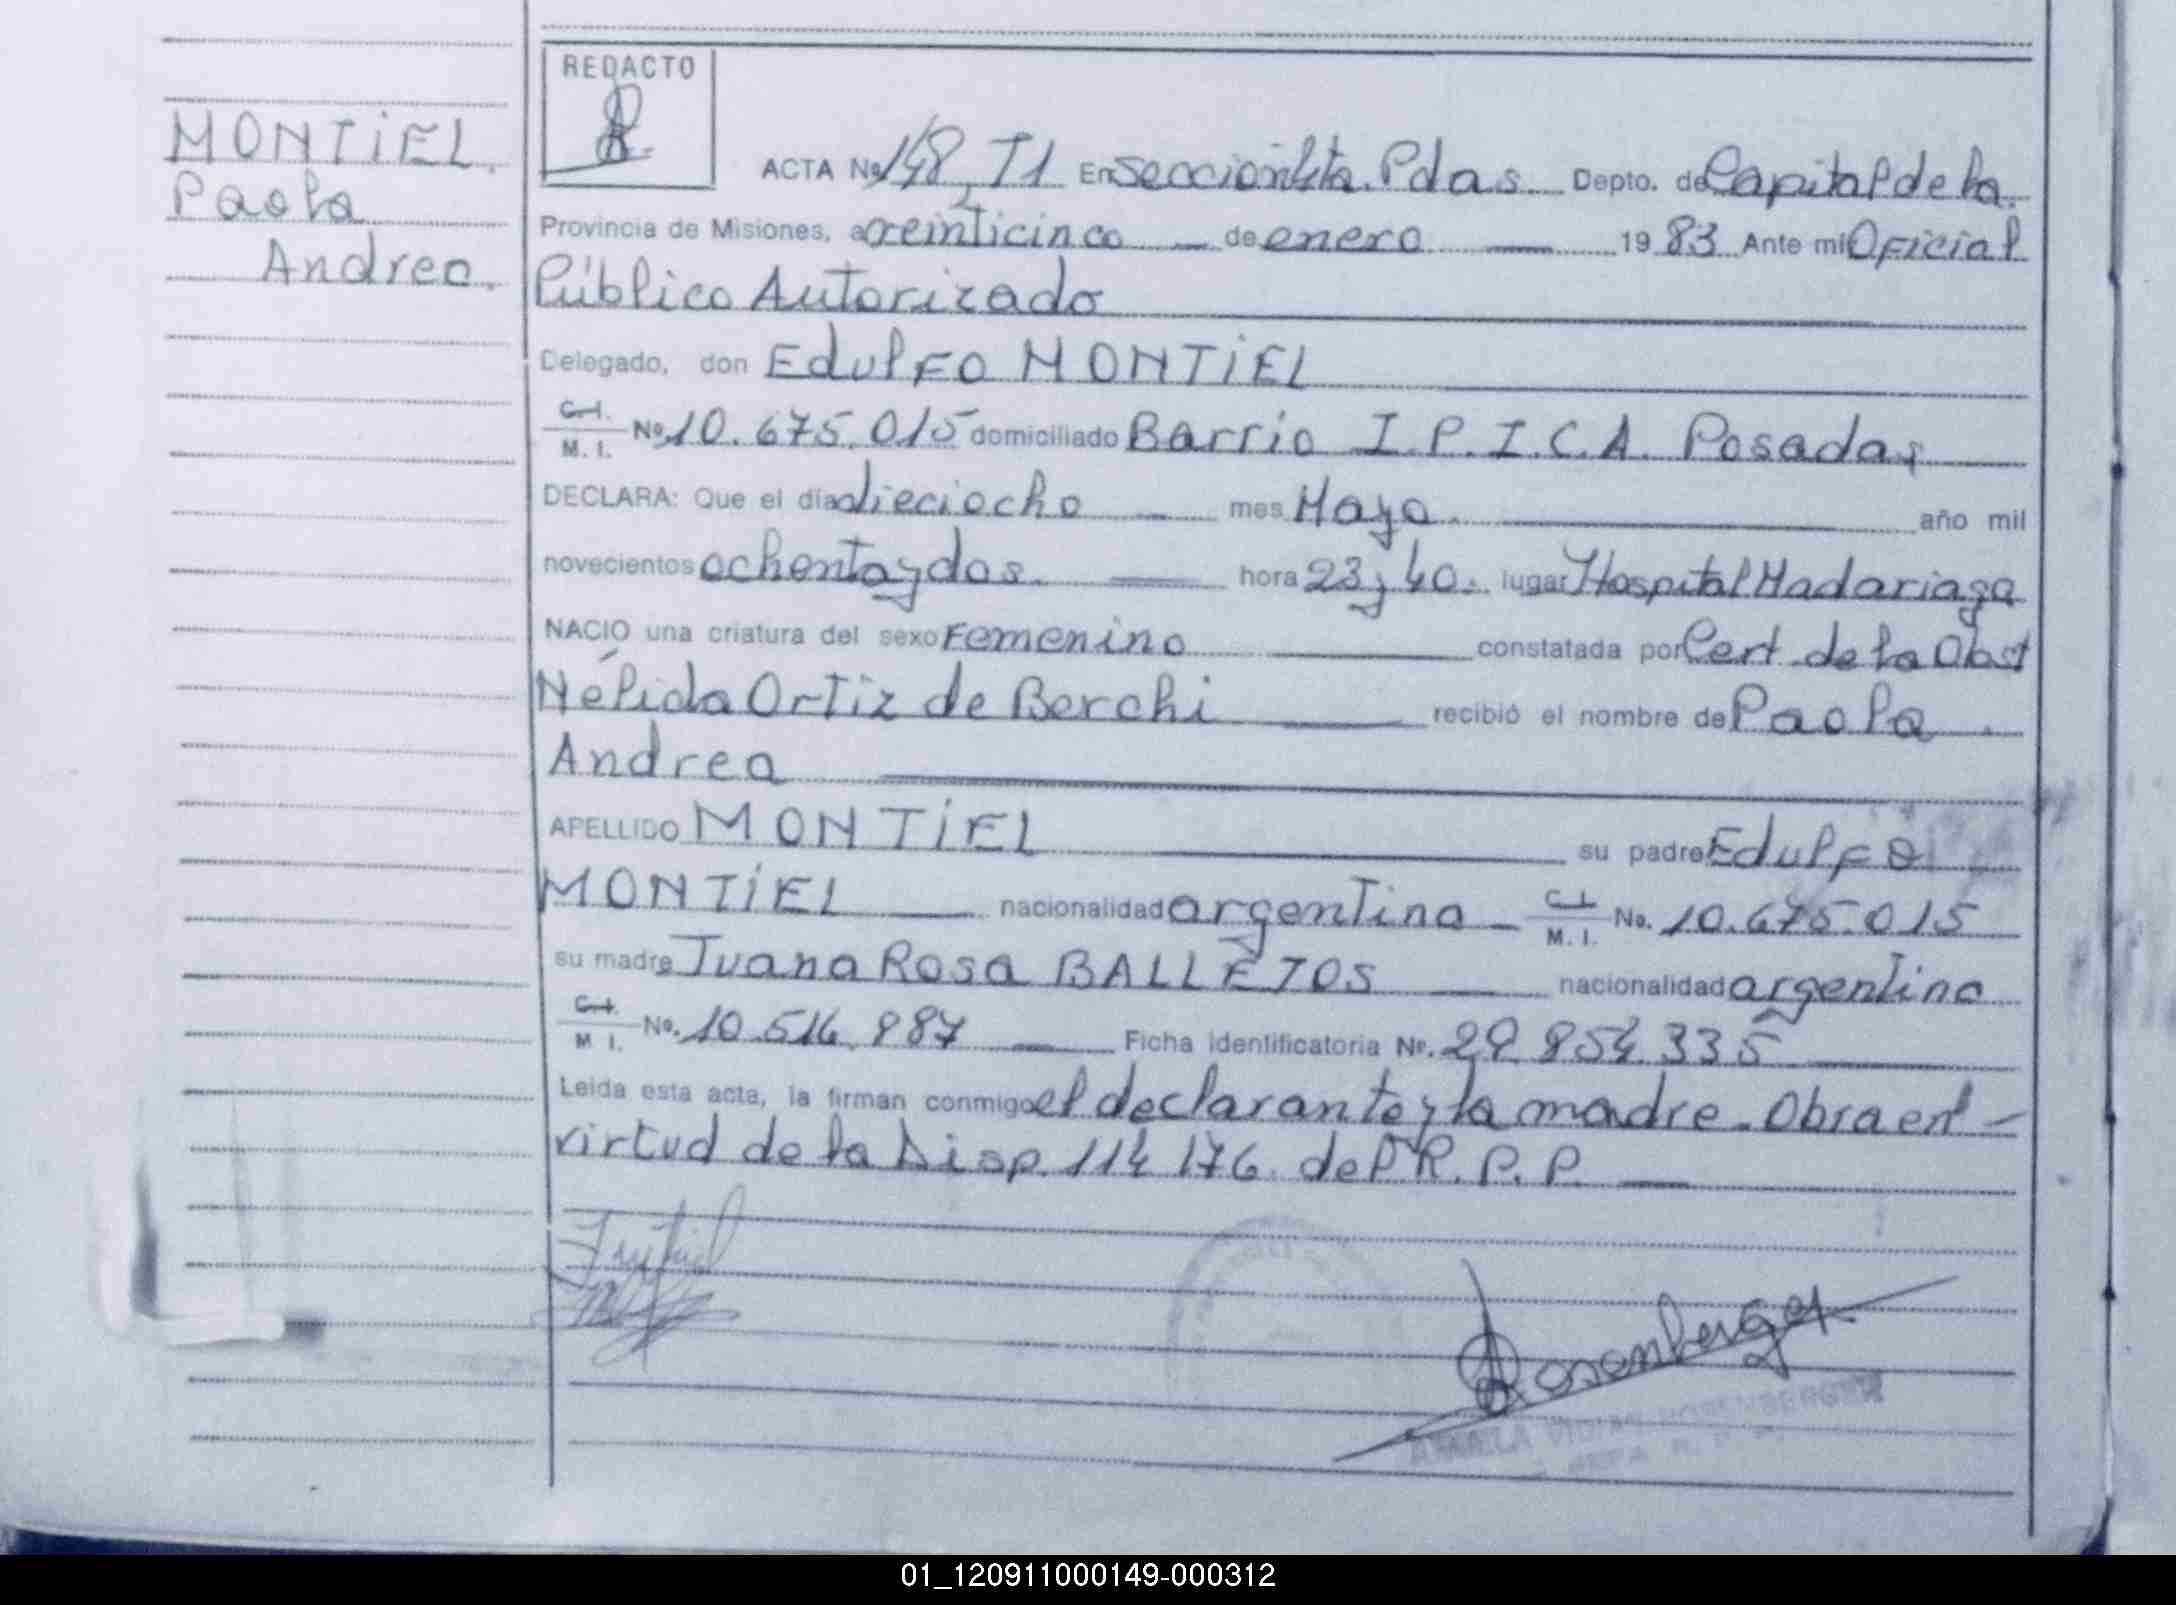 REDACTO
MONTIEL.
Paola
Andrea.
ACTA Nº 148, T1 En Sección 4ta. Pdas Depto. de Capital de la
Provincia de Misiones, a veinticinco de enero 1983 Ante mi Oficial
Público Autorizado
Delegado, don Edulfo MONTIEL
C.I.
M. I. Nº 10.675.015 domiciliado Barrio I.P.I.C.A. Posadas
DECLARA: Que el día dieciocho mes Mayo año mil
novecientos ochenta y dos. hora 23 y 40. lugar Hospital Madariaga
NACIO una criatura del sexo Femenino constatada por Cert de la Obst
Nélida Ortiz de Berchi recibió el nombre de Paola
Andrea
APELLIDO MONTIEL su padre Edulfo
MONTIEL nacionalidad argentina C.I.
M. I. No. 10.675.015
su madre Juana Rosa BALLEJOS nacionalidad argentina
C.I.
M I. No. 10.514.987 Ficha identificatoria Nº. 29.854.335
Leida esta acta, la firman conmigo el declarante y la madre. Obra en
virtud de la Disp. 114 176. del R. P. P.
Rosenberger
ROSENBERGER
01_120911000149-000312